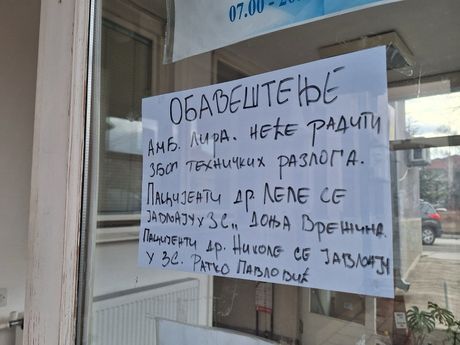 07.00-20
ОБАВЕШТЕЊЕ
АМБ. ЛИРА. НЕЋЕ РАДИТИ
ЗБОГ ТЕХНИЧКИХ РАЗЛОГА.
ПАЦИЈЕНТИ ДР. ЛЕЛЕ СЕ
ЈАВЉАЈУ У ЗС „ ДОЊА ВРЕЖИНА.
ПАЦИЈЕНТИ ДР. НИКОЛЕ СЕ ЈАВЉАЈУ
У ЗС. РАТКО ПАВЛОВИЋ